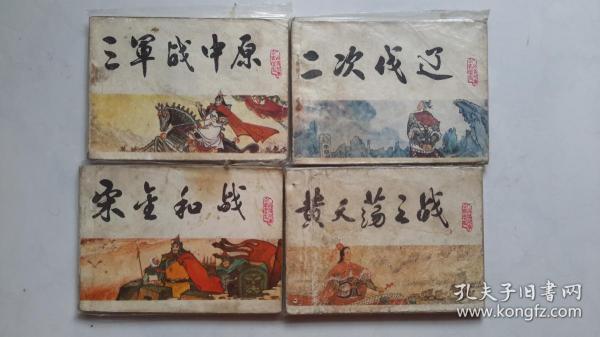 三軍战中原
二次伐辽
宋金和战
黄天荡之战
孔夫子旧书网
www.kongfz.com